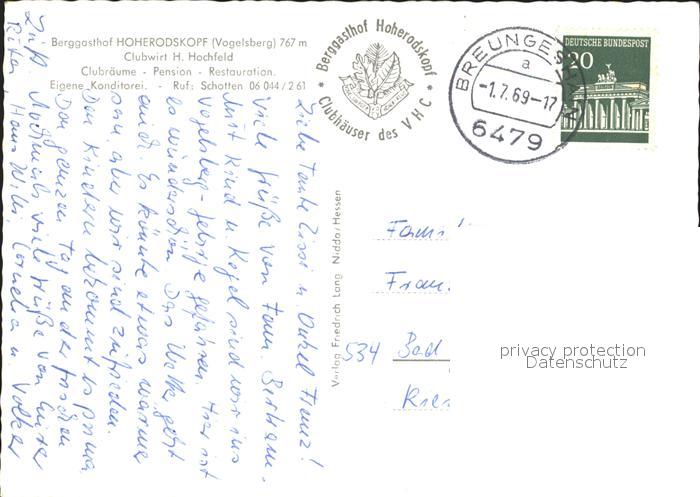 Berggasthof HOHERODSKOPF (Vogelsberg) 767 m
Clubwirt H. Hochfeld
Clubräume - Pension - Restauration.
Eigene Konditorei. - Ruf: Schotten 06 044 / 2 61
Berggasthof Hoherodskopf
Clubhäuser des VHC
BREUNGESHAIN
a
-1.7.69-17
6479
DEUTSCHE BUNDESPOST
20
Liebe Tante Lissi u. Onkel Franz!
Viele Grüße von Fam.
Mit Kind u. Kegel sind wir ins
Vogelsberg-Gebirge gefahren. Hier ist
es wunderschön. Das Wetter geht
auch. Es könnte etwas wärmer
sein, aber wir sind zufrieden.
Den Kindern bekommt es prima,
Den ganzen Tag an der frischen
Luft. Nochmals viele Grüße von
Rika, Hans Willi, Cornelia u. Volker
Verlag Friedrich Lang Nidda/Hessen
Fam.
Fran
534 Bad
privacy protection
Datenschutz